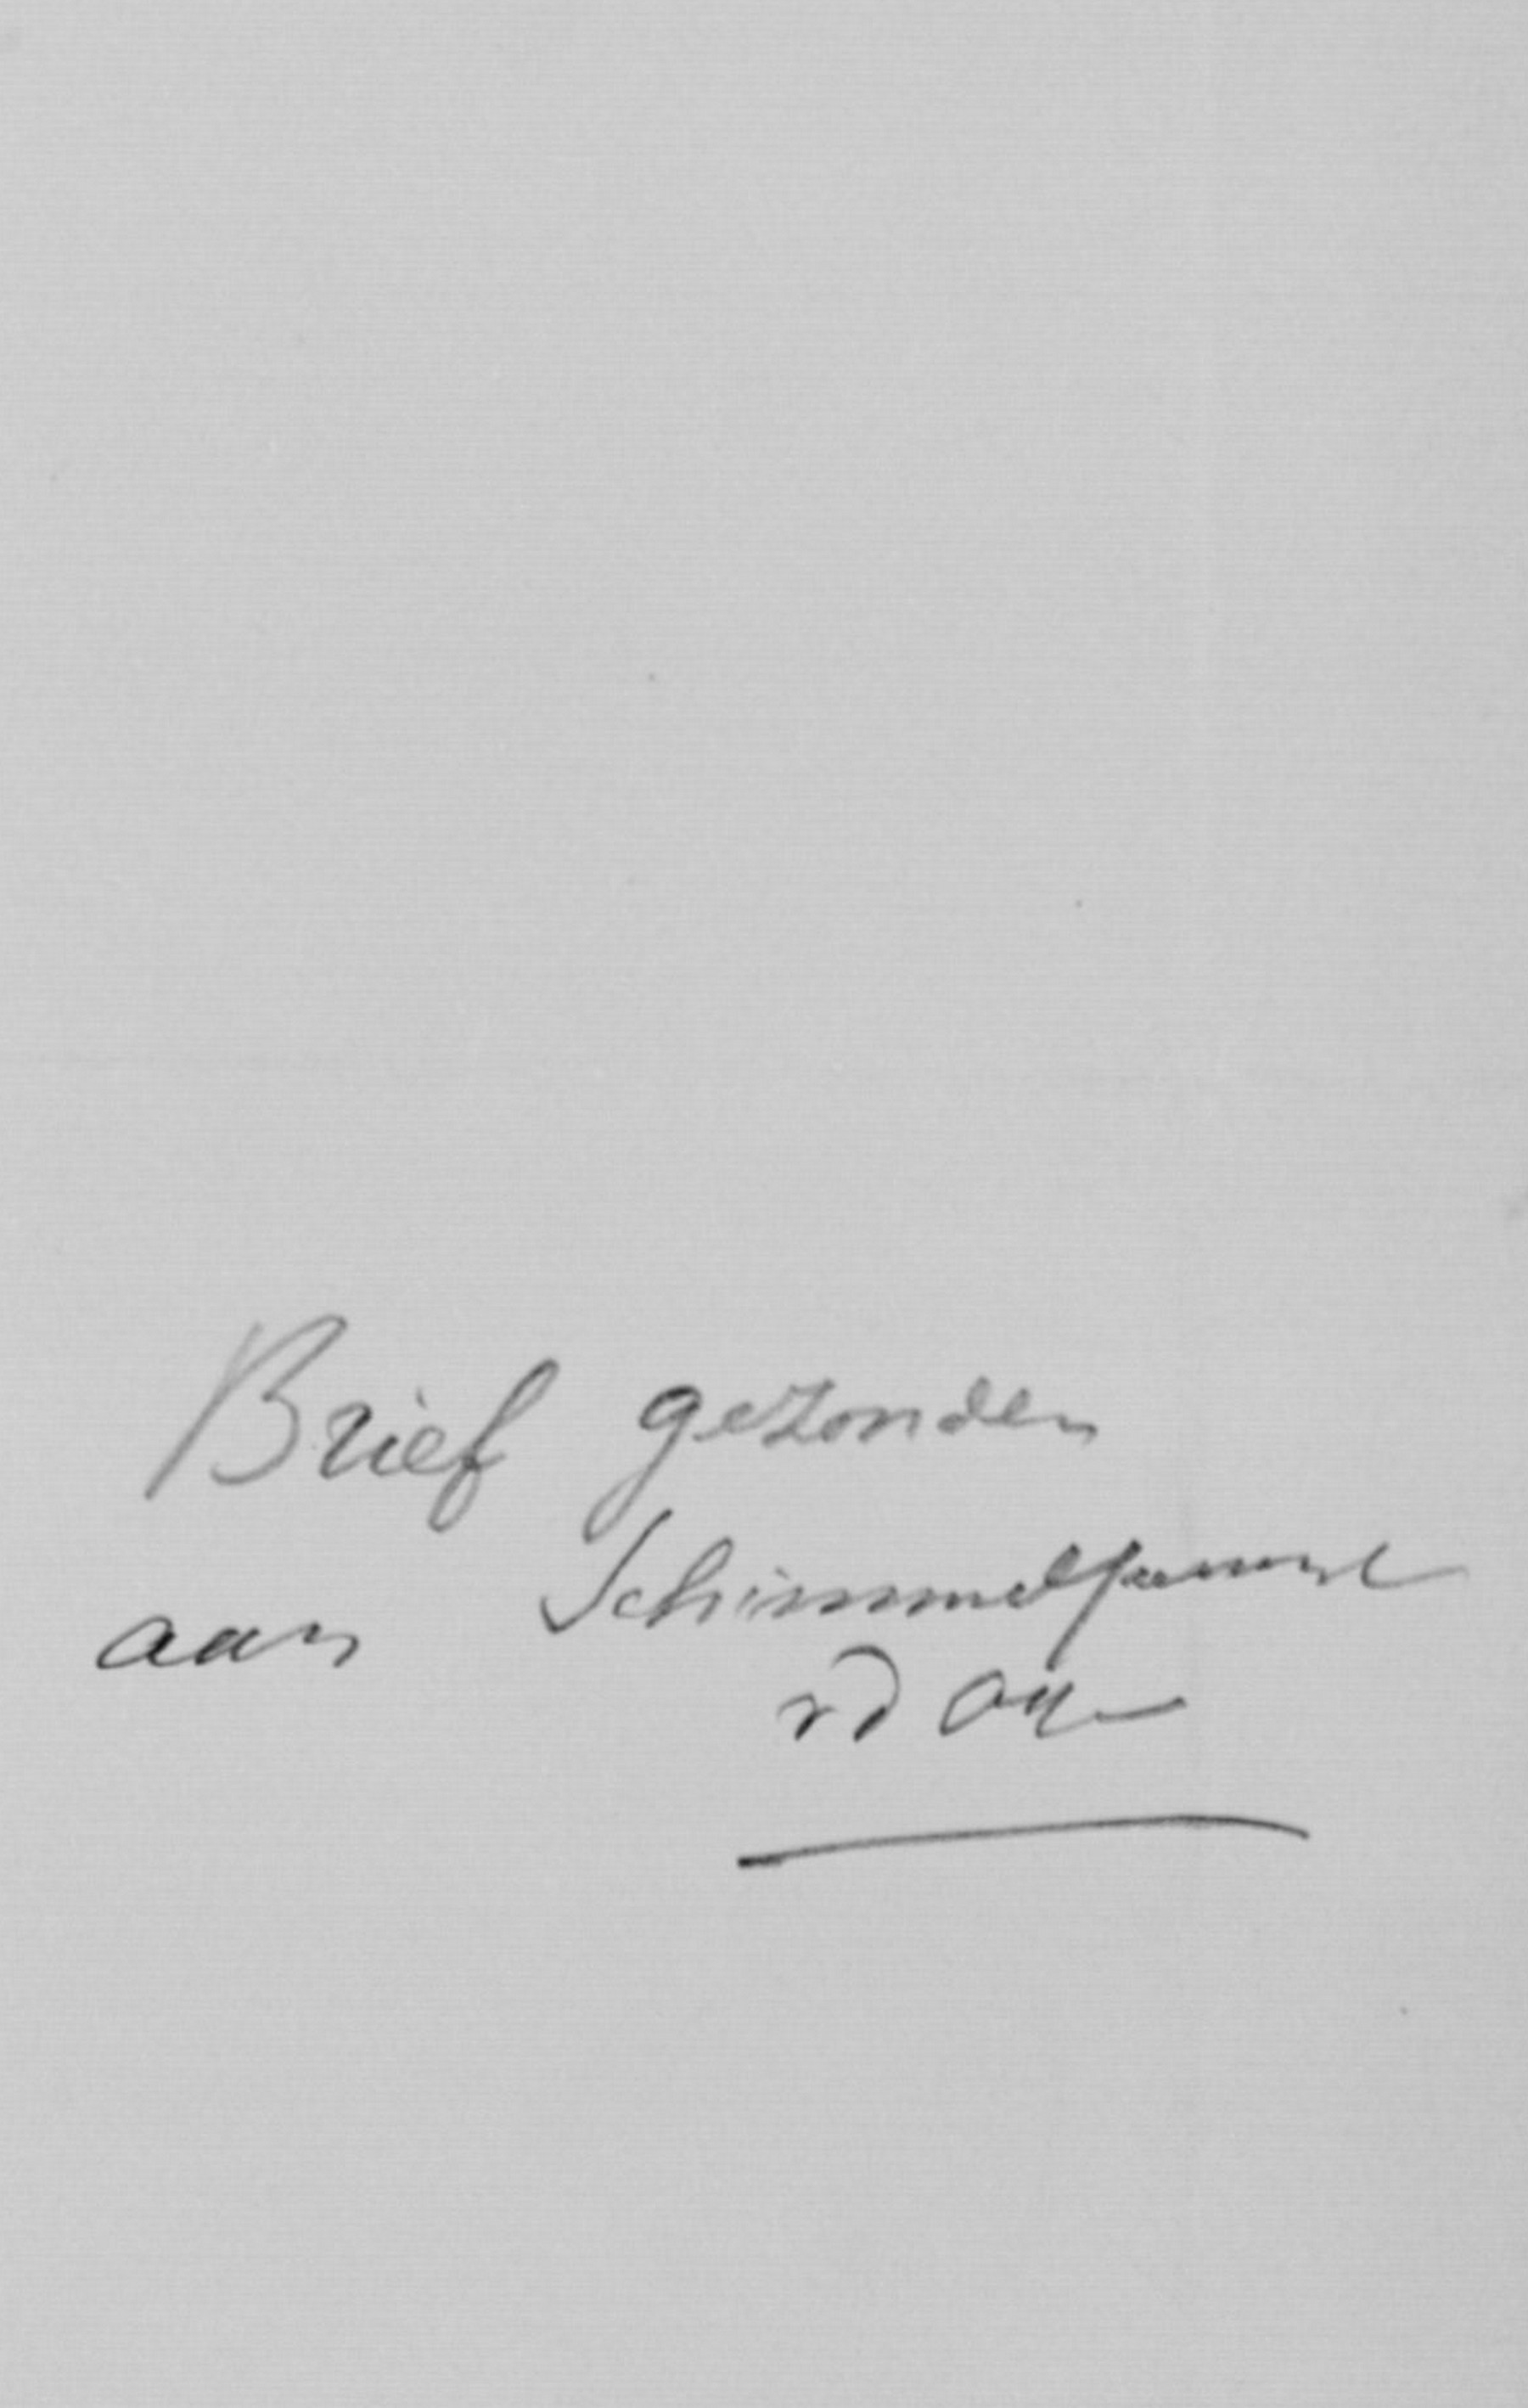 Brief gezonden
aan Schimmelpenninck
v d Oye